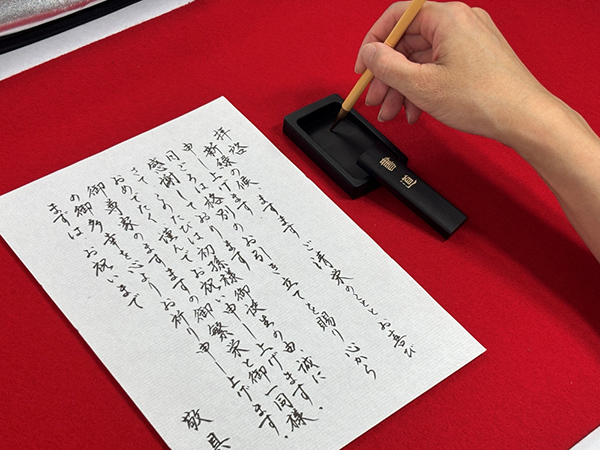 拝啓
新緑の候 ますます ご清栄のこととお喜び
申し上げます
日ごろは格別のお引き立てを賜り心から
感謝しております
さてこのたびは初孫様御誕生の由誠に
おめでたく謹んでお祝い申し上げます
御尊家のますますの御繁栄と御一同様
の御多幸を心よりお祈り申し上げます。
まずはお祝いまで
敬具
書道